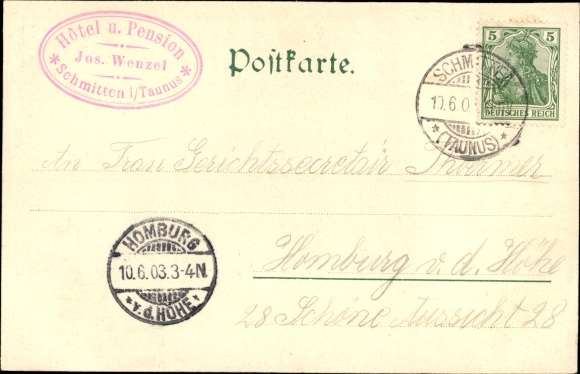 Hôtel u. Pension
Jos. Wenzel
* Schmitten i/Taunus *
Postkarte.
5 5
DEUTSCHES REICH
SCHMITTEN
10.6.0
* (TAUNUS) *
An Frau Gerichtssecretair Thürmer
HOMBURG
10.6.03.3-4N.
* v.d.HÖHE *
Homburg v. d. Höhe
28 Schöne Aussicht 28